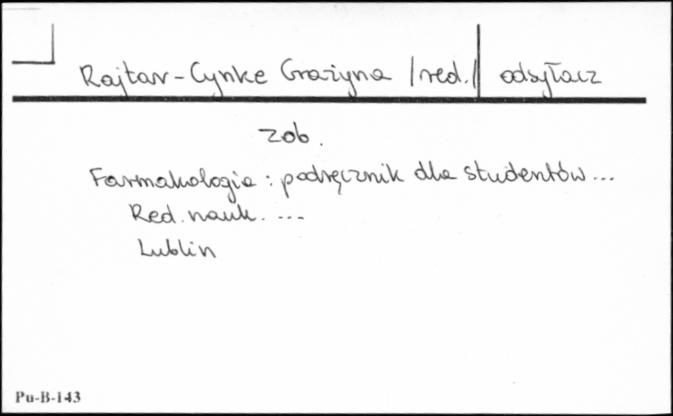 Rajtar-Cynke Grażyna /red./ odsyłacz
zob.
Farmakologia : podręcznik dla studentów...
Red. nauk. ...
Lublin
Pu-B-143